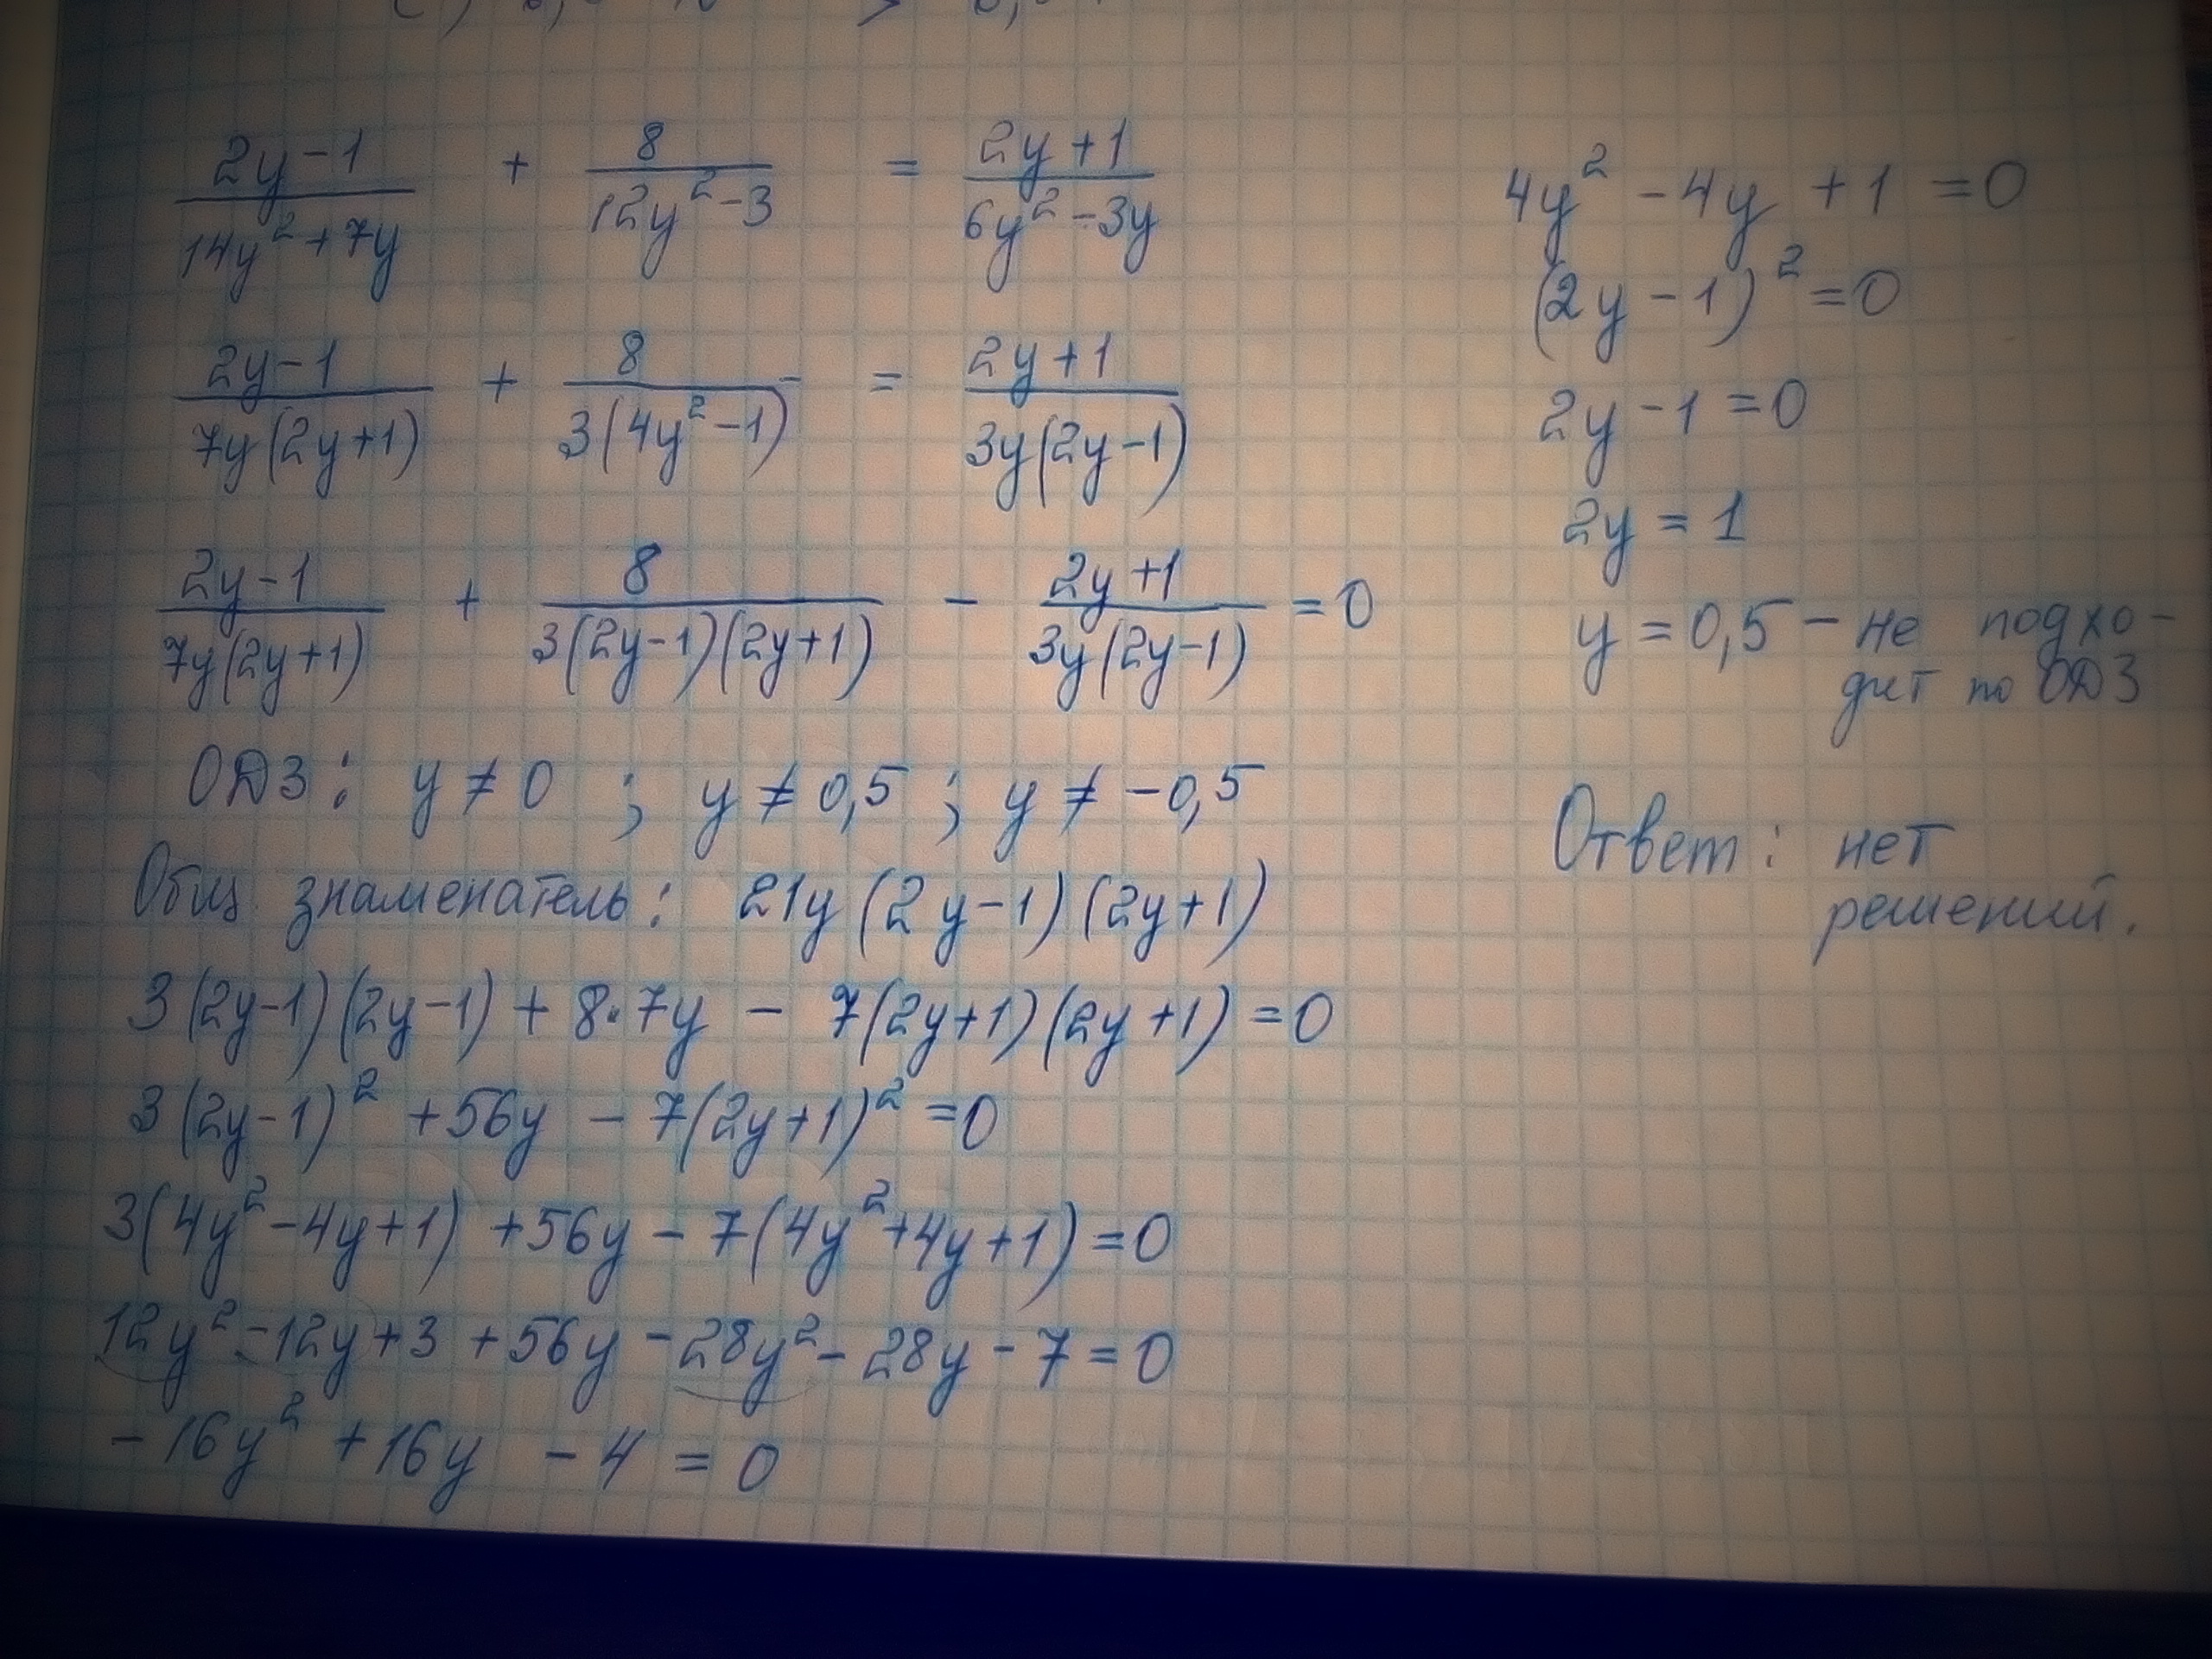 (2y-1)/(14y²+7y) + 8/(12y²-3) = (2y+1)/(6y²-3y)
(2y-1)/(7y(2y+1)) + 8/(3(4y²-1)) = (2y+1)/(3y(2y-1))
(2y-1)/(7y(2y+1)) + 8/(3(2y-1)(2y+1)) - (2y+1)/(3y(2y-1)) = 0
ОДЗ: y ≠ 0 ; y ≠ 0,5 ; y ≠ -0,5
Общ. знаменатель: 21y(2y-1)(2y+1)
3(2y-1)(2y-1) + 8·7y - 7(2y+1)(2y+1) = 0
3(2y-1)² + 56y - 7(2y+1)² = 0
3(4y²-4y+1) + 56y - 7(4y²+4y+1) = 0
12y² - 12y + 3 + 56y - 28y² - 28y - 7 = 0
-16y² + 16y - 4 = 0
4y² - 4y + 1 = 0
(2y - 1)² = 0
2y - 1 = 0
2y = 1
y = 0,5 - не подхо-
дит по ОДЗ
Ответ: нет
решений.